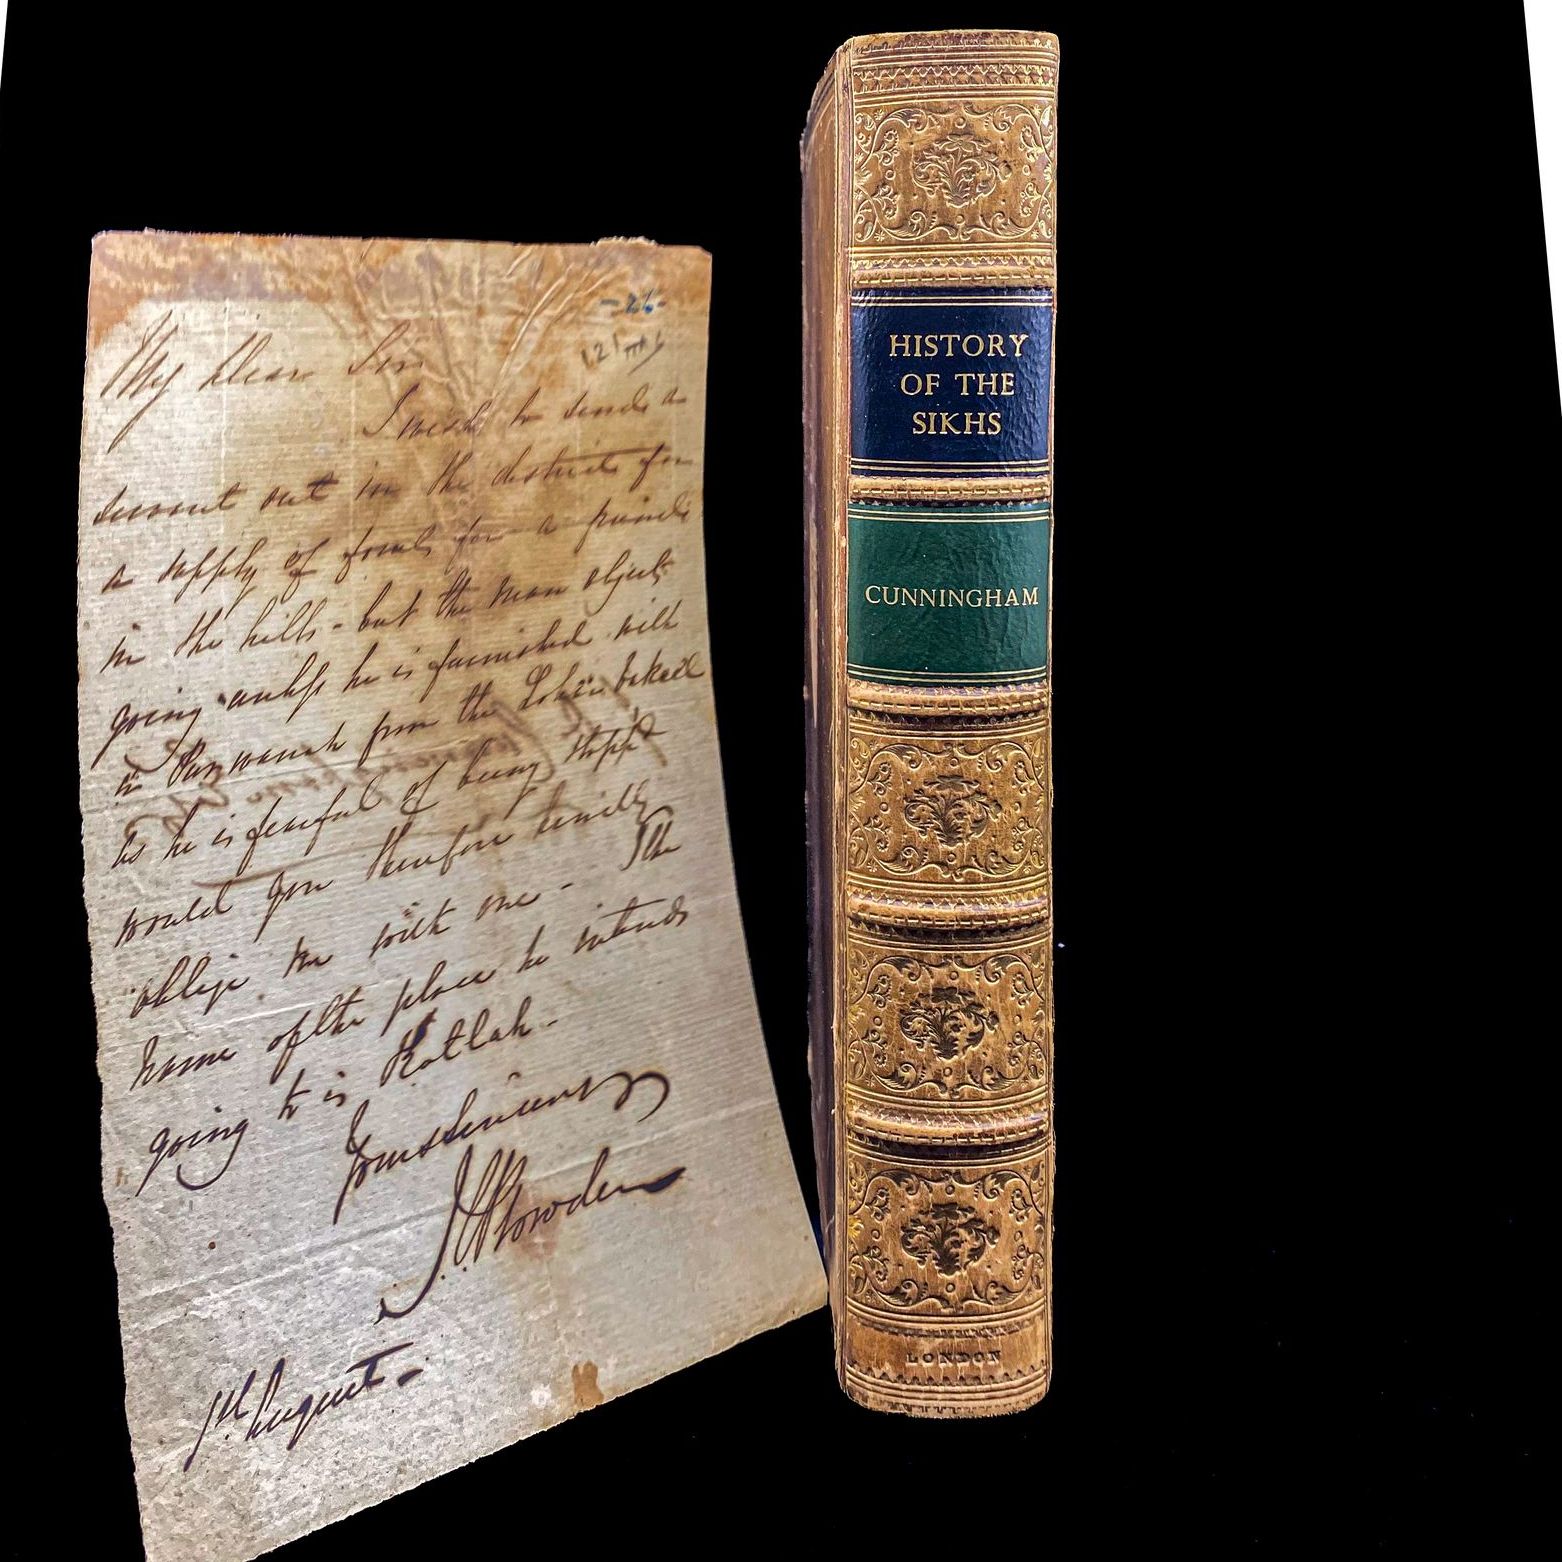 -26-
My dear Sir
I wish to send a
servant out in the districts for
a supply of fowls for a friend
in the hills - but the man objects
going unless he is furnished with
a Purwanah from the
As he is fearful of being stopp'd
would you therefore kindly
oblige me with one - The
name of the place he intends
going to is Kotlah -
Yours sincerely
Plowden
1st August -
HISTORY
OF THE
SIKHS
CUNNINGHAM
LONDON